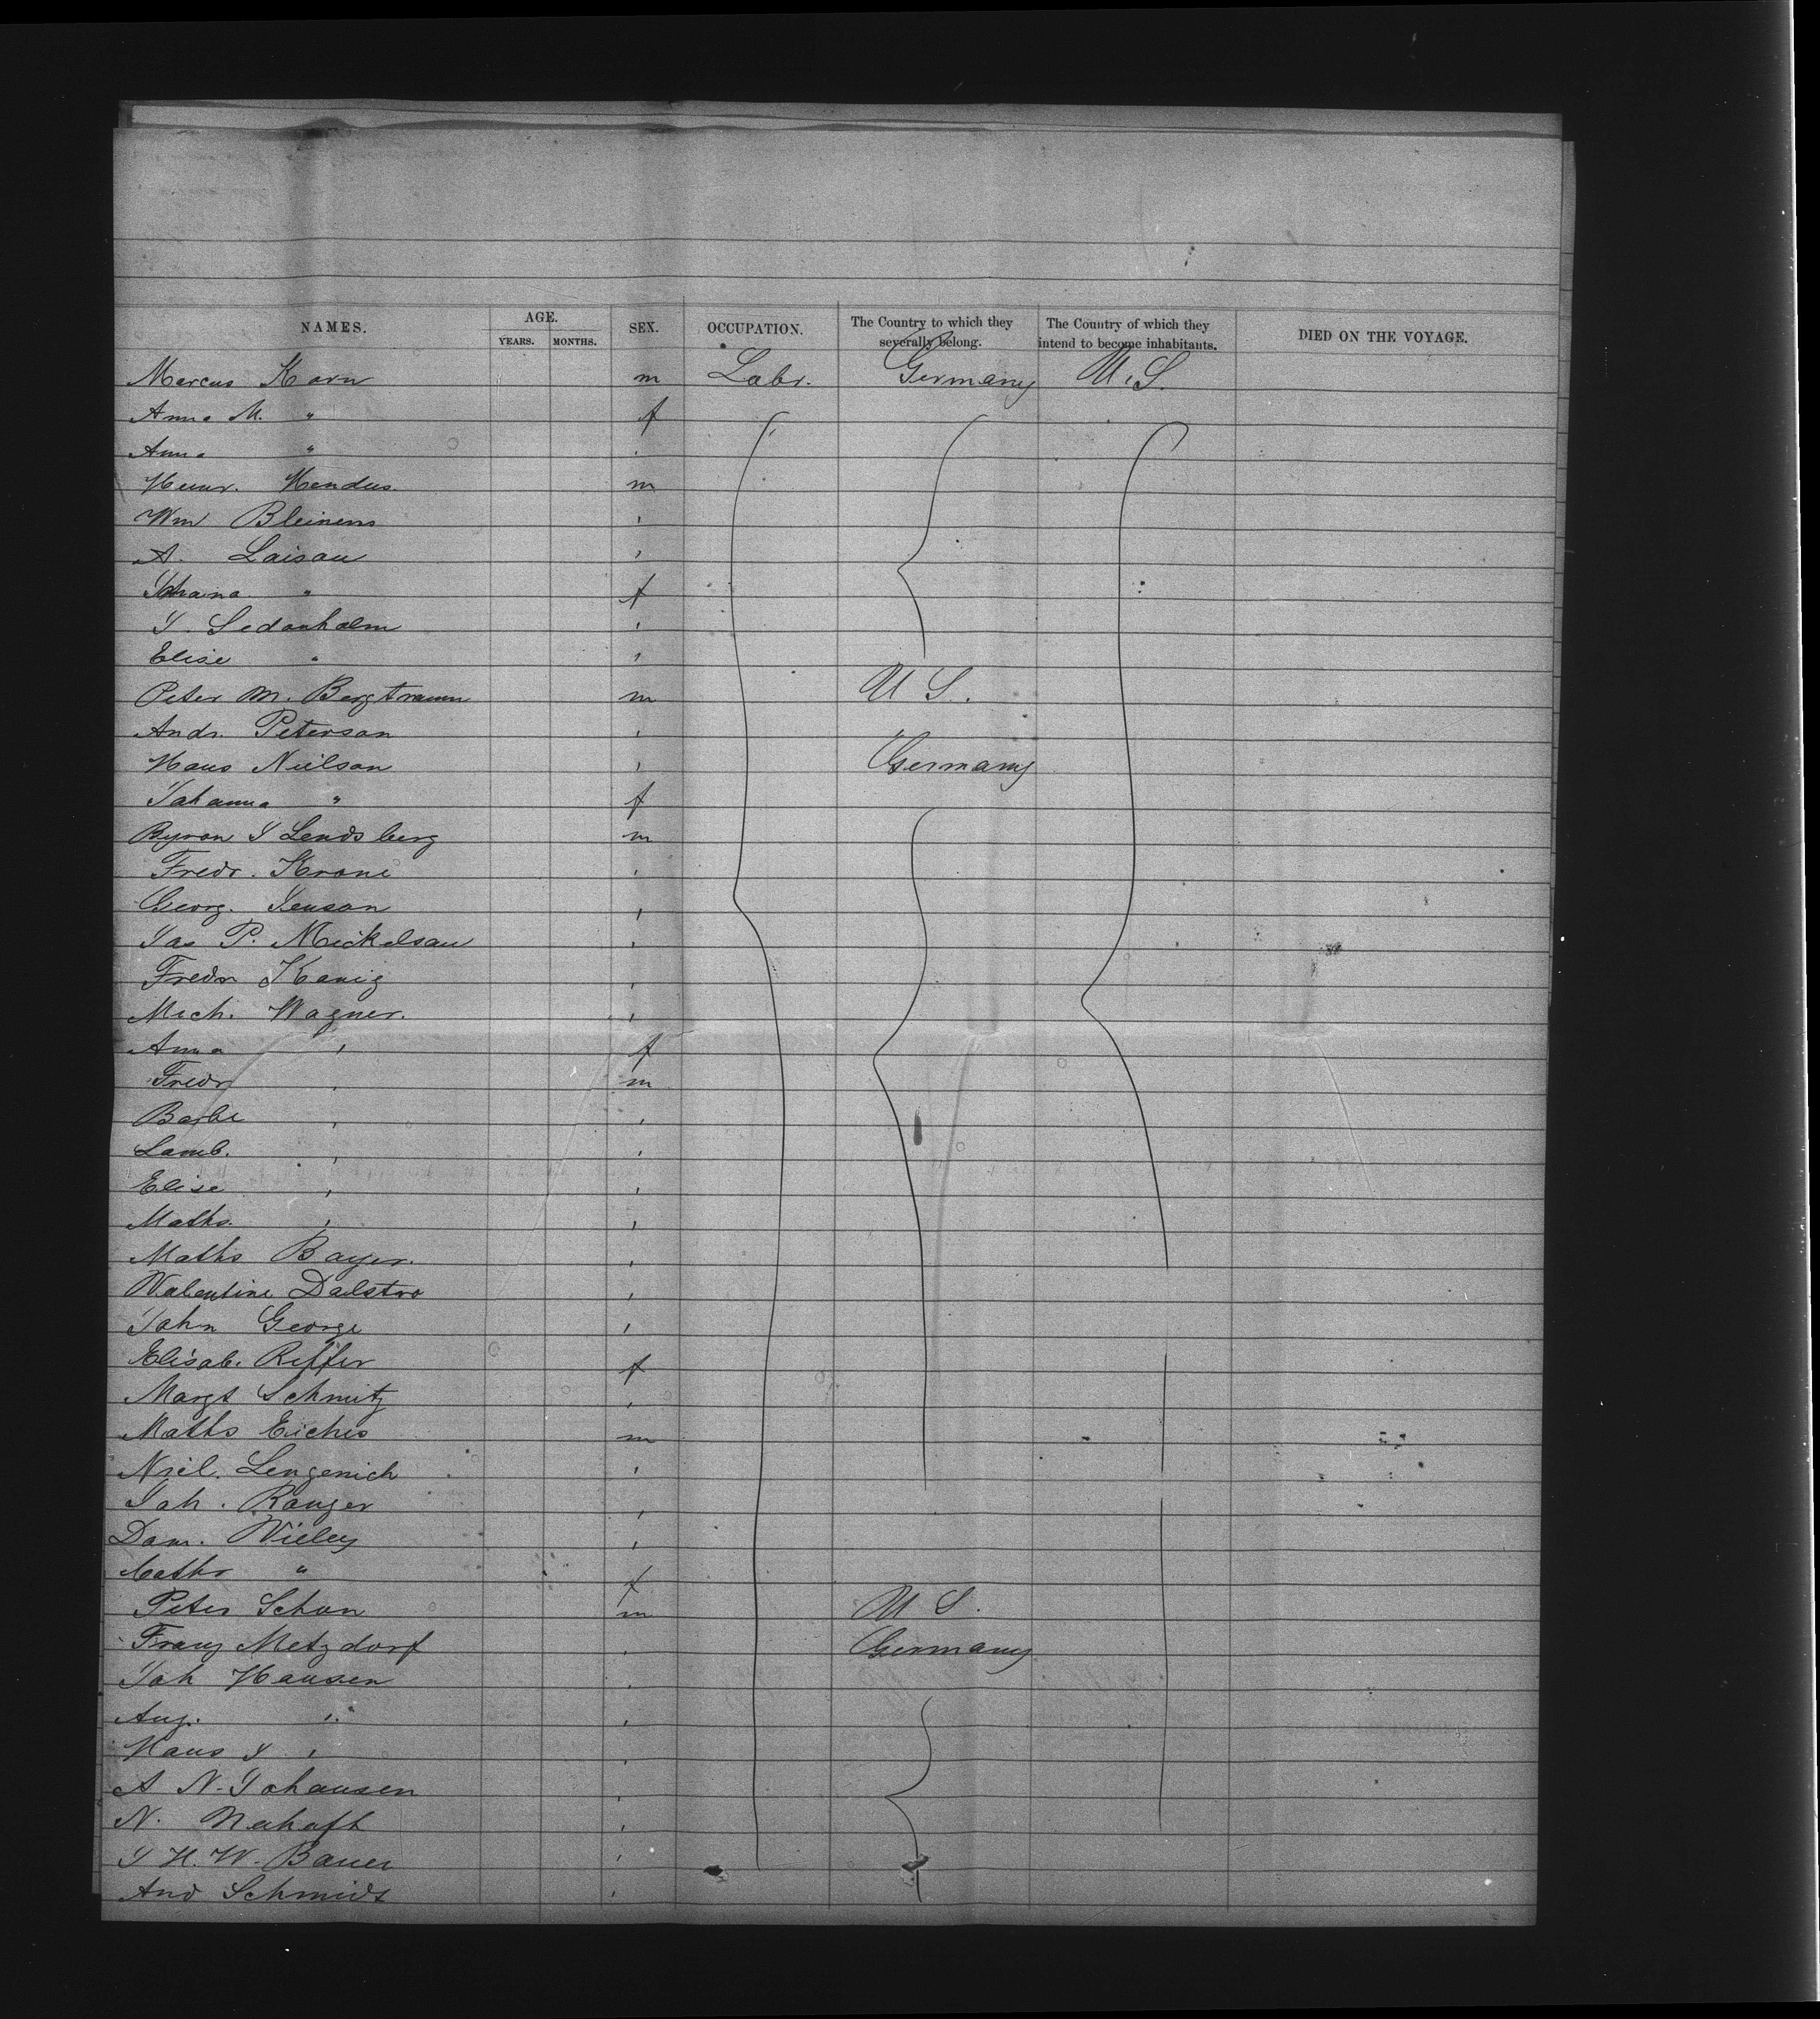 NAMES. AGE. SEX. OCCUPATION. The Country to which they severally belong. The Country of which they intend to become inhabitants. DIED ON THE VOYAGE.
YEARS. MONTHS.
Marcus Korn m Labr. Germany U.S.
Anna M. " f
Anna "
Heinr. Hendus m
Wm Bleinens '
A. Laisau '
Johana " f
J. Sedanholm '
Elise " '
Peter M. Bergtraum m U S.
Andr. Peterson '
Hans Nielson ' Germany
Johanna " f
Byron J Lendsberg m
Fredr. Krone '
Georg. Jenson '
Jas P. Mickelsau '
Fredr Kanig '
Mich. Wagner. '
Anna ' f
Fredr ' m
Barbe ' '
Lamb. ' '
Elise ' '
Maths. ' '
Maths Bayer. '
Valentine Dalstro '
John George '
Elisab. Reffer f
Margt Schmitz '
Maths Eiches m
Niel. Lengenich '
Joh. Ranger '
Dam. Wieley '
Cathr " f
Peter Schon m U S.
Franz Metzdorf ' Germany
Joh Hansen '
Aug. " '
Hans J ' '
A N. Johansen '
N. Nahaft '
J H. W. Bauer '
And Schmidt '